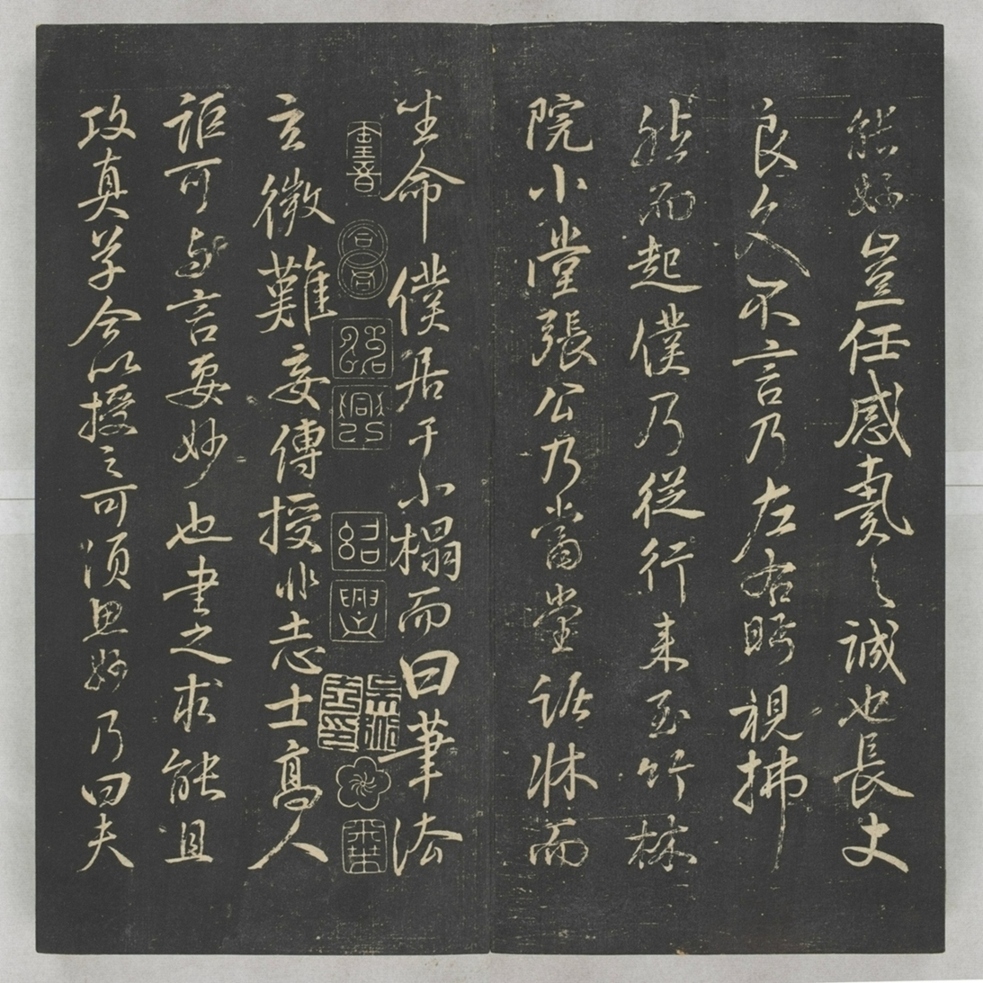 能妙豈任感戴之誠也長史
良久不言乃左右眄視拂
然而起僕乃從行来至竹林
院小堂張公乃當堂踞牀而
坐命僕居于小榻而曰筆法
紹興
紹興
玄微難妄傳授非志士高人
詎可與言要妙也書之求能且
攻真草今以授之可須思妙乃曰夫